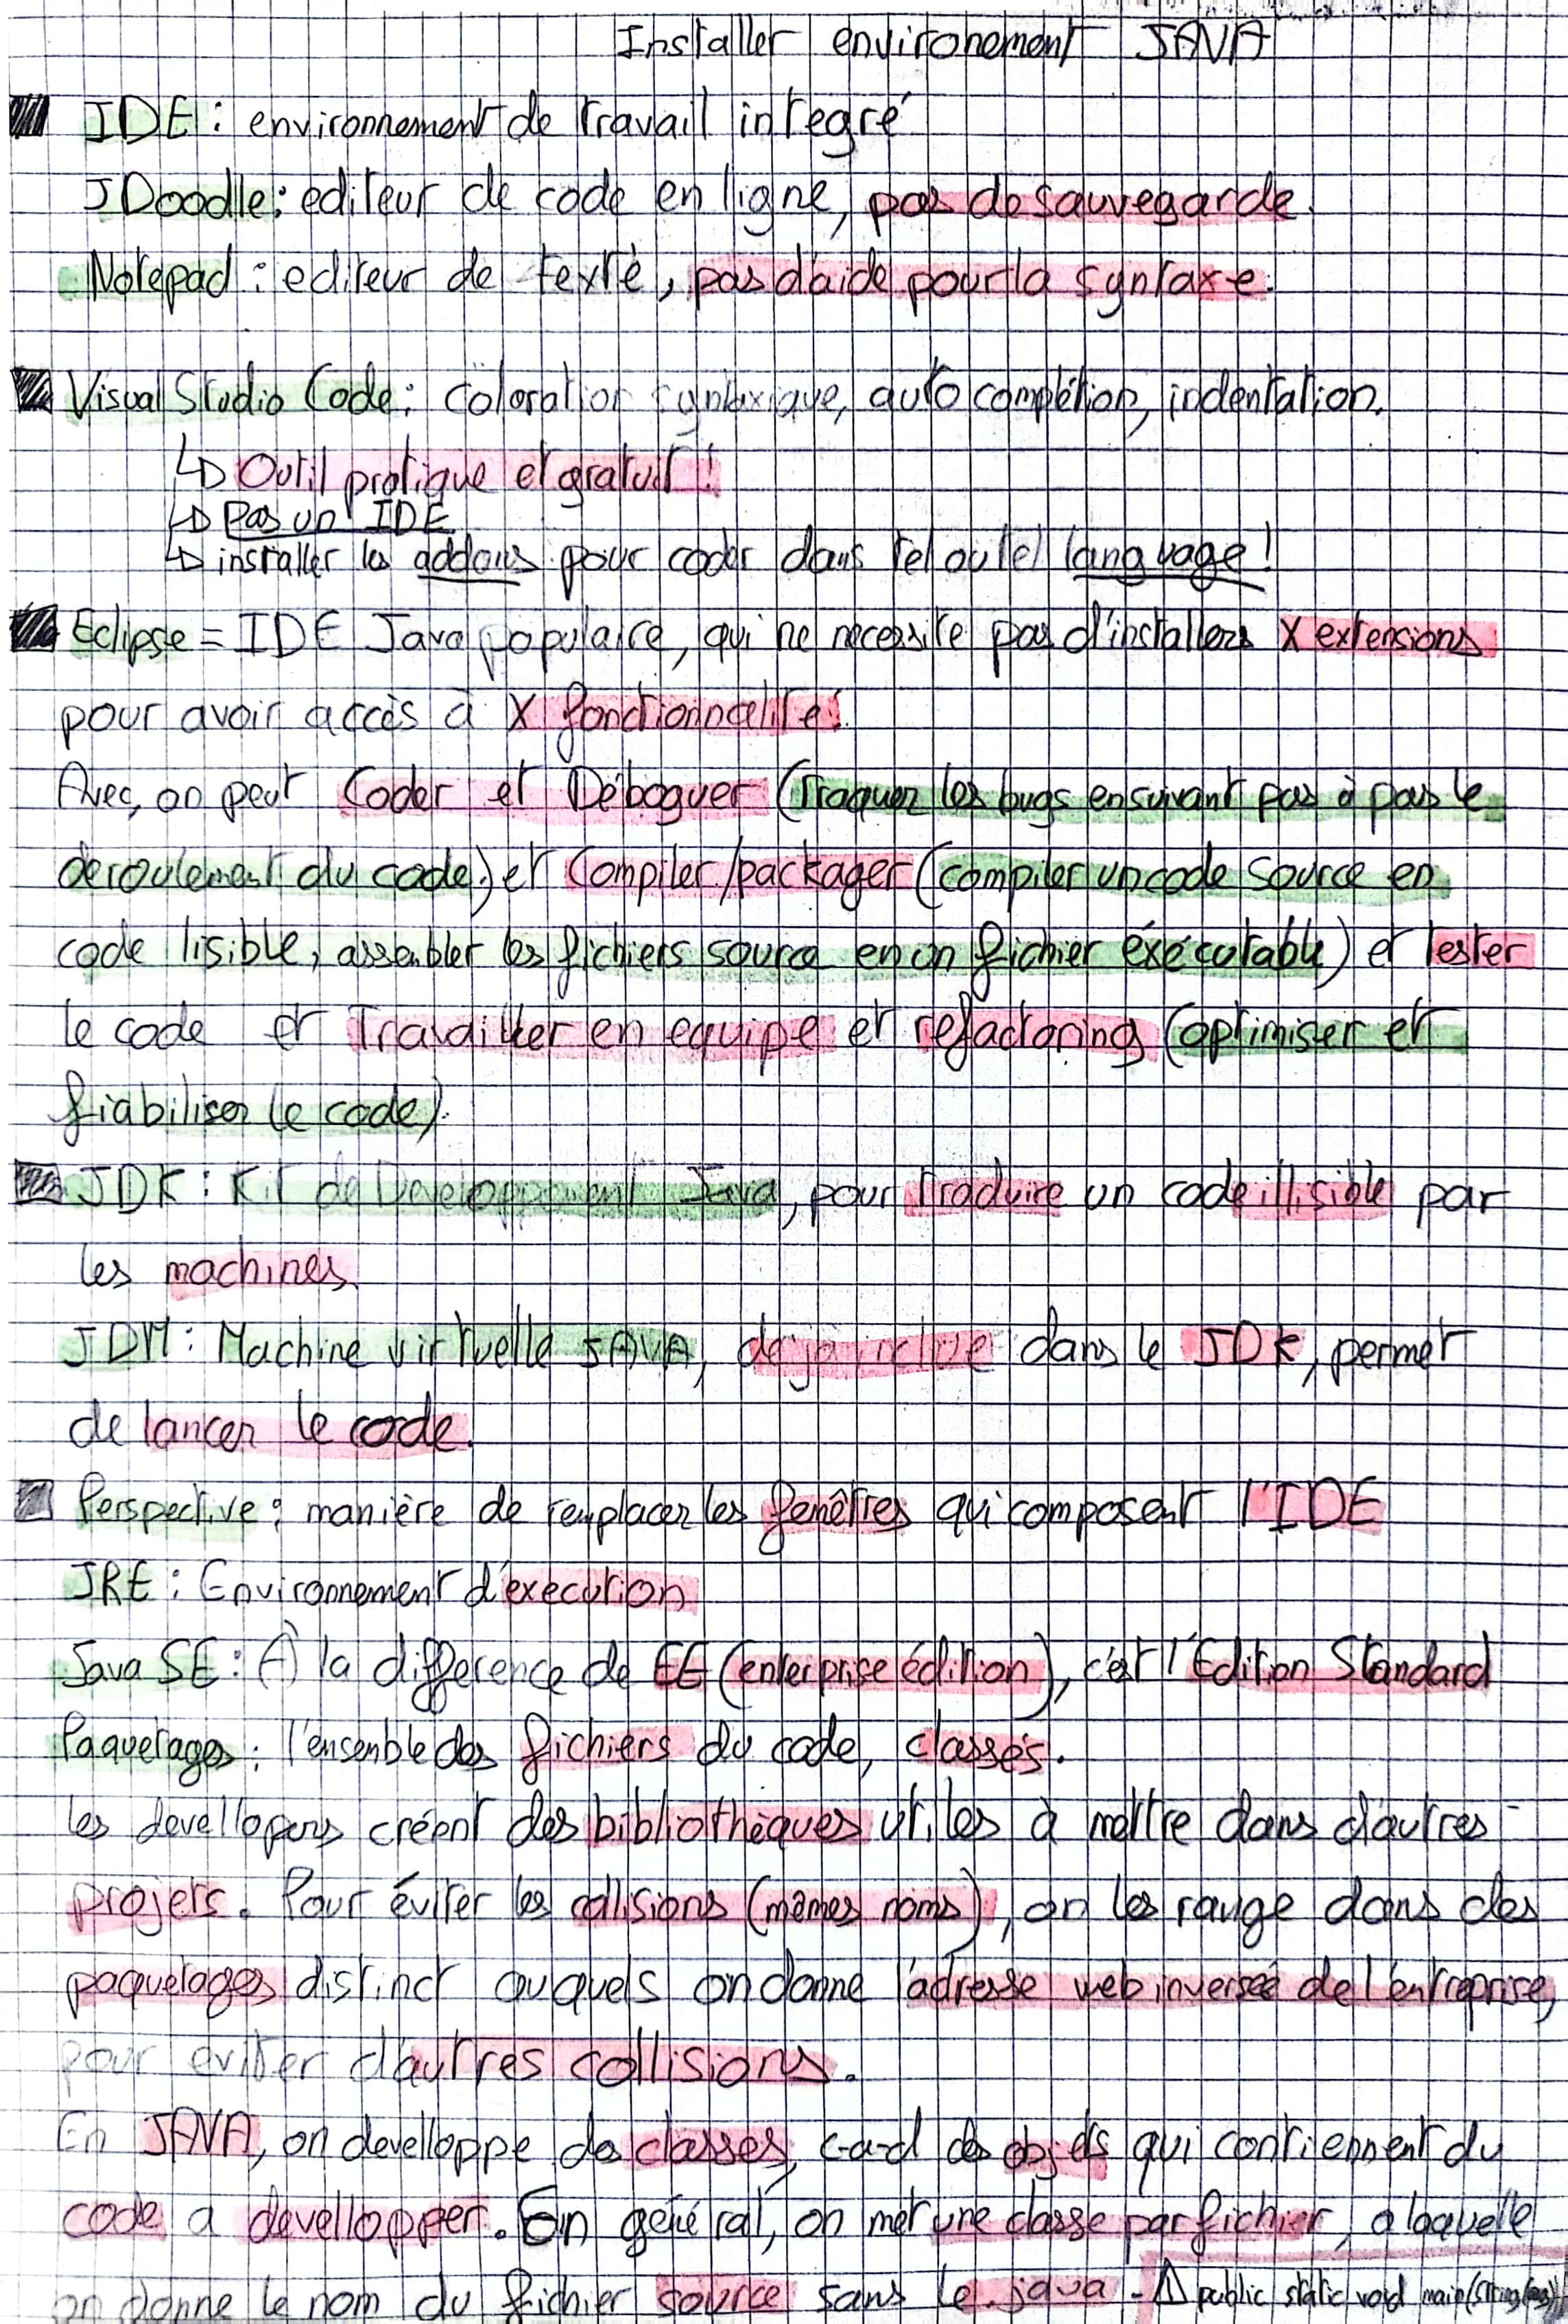 Installer environement JAVA
IDE : environnement de travail integré
JDoodle : editeur de code en ligne, pas de sauvegarde.
Notepad : editeur de texte, pas d'aide pour la syntaxe.
Visual Studio Code : coloration syntaxique, auto complétion, indentation.
↳ Outil pratique et gratuit !
↳ Pas un IDE
↳ installer les addons pour coder dans tel ou tel language !
Eclipse = IDE Java populaire, qui ne necessite pas d'installers X extensions
pour avoir accès à X fonctionnalité.
Avec, on peut Coder et Déboguer (Traquer les bugs en suivant pas à pas le
deroulement du code) et Compiler/packager (compiler un code source en
code lisible, assembler les fichiers source en un fichier éxécutable) et tester
le code et Travailler en equipe et refactoring (optimiser et
fiabiliser le code).
JDK : Kit de Developpement Java, pour traduire un code illisible par
les machines
JDM : Machine virtuelle JAVA, deja inclue dans le JDK, permet
de lancer le code.
Perspective : manière de remplacer les fenêtres qui composent l'IDE
JRE : Environnement d'execution
Java SE : À la difference de EE (enterprise édition), c'est l'Edition Standard
Paquetages : l'ensemble des fichiers du code, classés.
les devellopers créent des bibliothèques utiles à mettre dans d'autres
projets. Pour éviter les collisions (mêmes noms), on les range dans des
paquetages distinct auquels on donne l'adresse web inversée de l'entreprise,
pour eviter d'autres collisions.
En JAVA, on develloppe des classes, c-a-d des objets qui contiennent du
code a devellopper. En général, on met une classe par fichier, a laquelle
on donne le nom du fichier source sans le .java - ⚠ public static void main(String[] args)